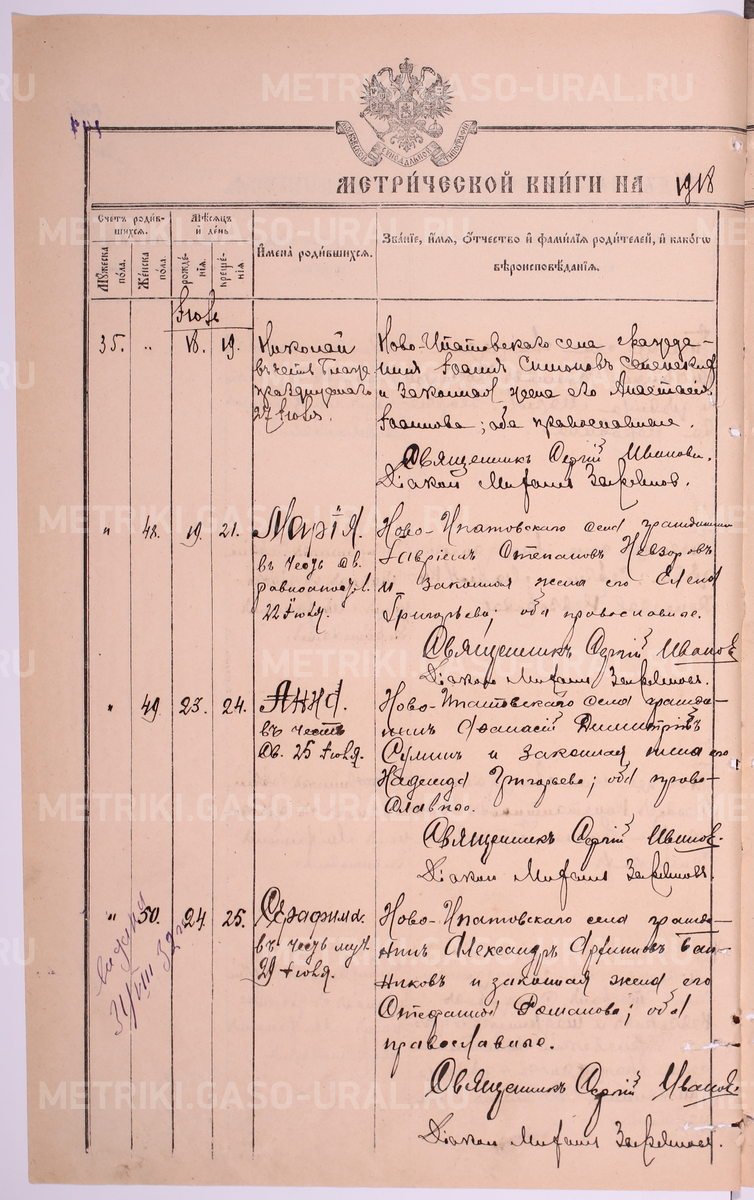 МОСКОВСКОЙ СУНОДАЛЬНОЙ ТИПОГРАФІИ
МЕТРИЧЕСКОЙ КНИГИ НА 1918
Счетъ родив-
шихся.
Мужеска
пола.
Женска
пола.
Мѣсяцъ
и день
рожде-
нія.
креще-
нія.
Имена родившихся.
Званіе, имя, отчество и фамилія родителей, и какого
вѣроисповѣданія.
Іюль
35. " 18. 19.
Николай
въ честь
празднуемаго
27 Іюля.
Ново-Ипатовскаго села гражда-
нинъ Іоаннъ Симоновъ
и законная жена его Анастасія
Іоаннова; оба православные.
Священникъ Сергій Ивановъ.
Діаконъ
" 48. 19. 21.
Марія
въ честь св.
равноапостол.
22 Іюля.
Ново-Ипатовскаго села гражданинъ
Гавріилъ Стефановъ Невзоровъ
и законная жена его Елена
Григорьева; оба православные.
Священникъ Сергій Ивановъ
Діаконъ
" 49. 23. 24.
Анна
въ честь
св. 25 Іюля.
Ново-Ипатовскаго села гражда-
нинъ Афанасій Димитріевъ
и законная жена его
Надежда Григорьева; оба право-
славные.
Священникъ Сергій Ивановъ.
Діаконъ
" 50. 24. 25.
Серафима
въ честь муч.
29 Іюля.
Ново-Ипатовскаго села гражда-
нинъ Александръ
и законная жена его
Стефанида Романова; оба
православные.
Священникъ Сергій Ивановъ
Діаконъ
31/VIII 32 г.
METRIKI.GASO-URAL.RU